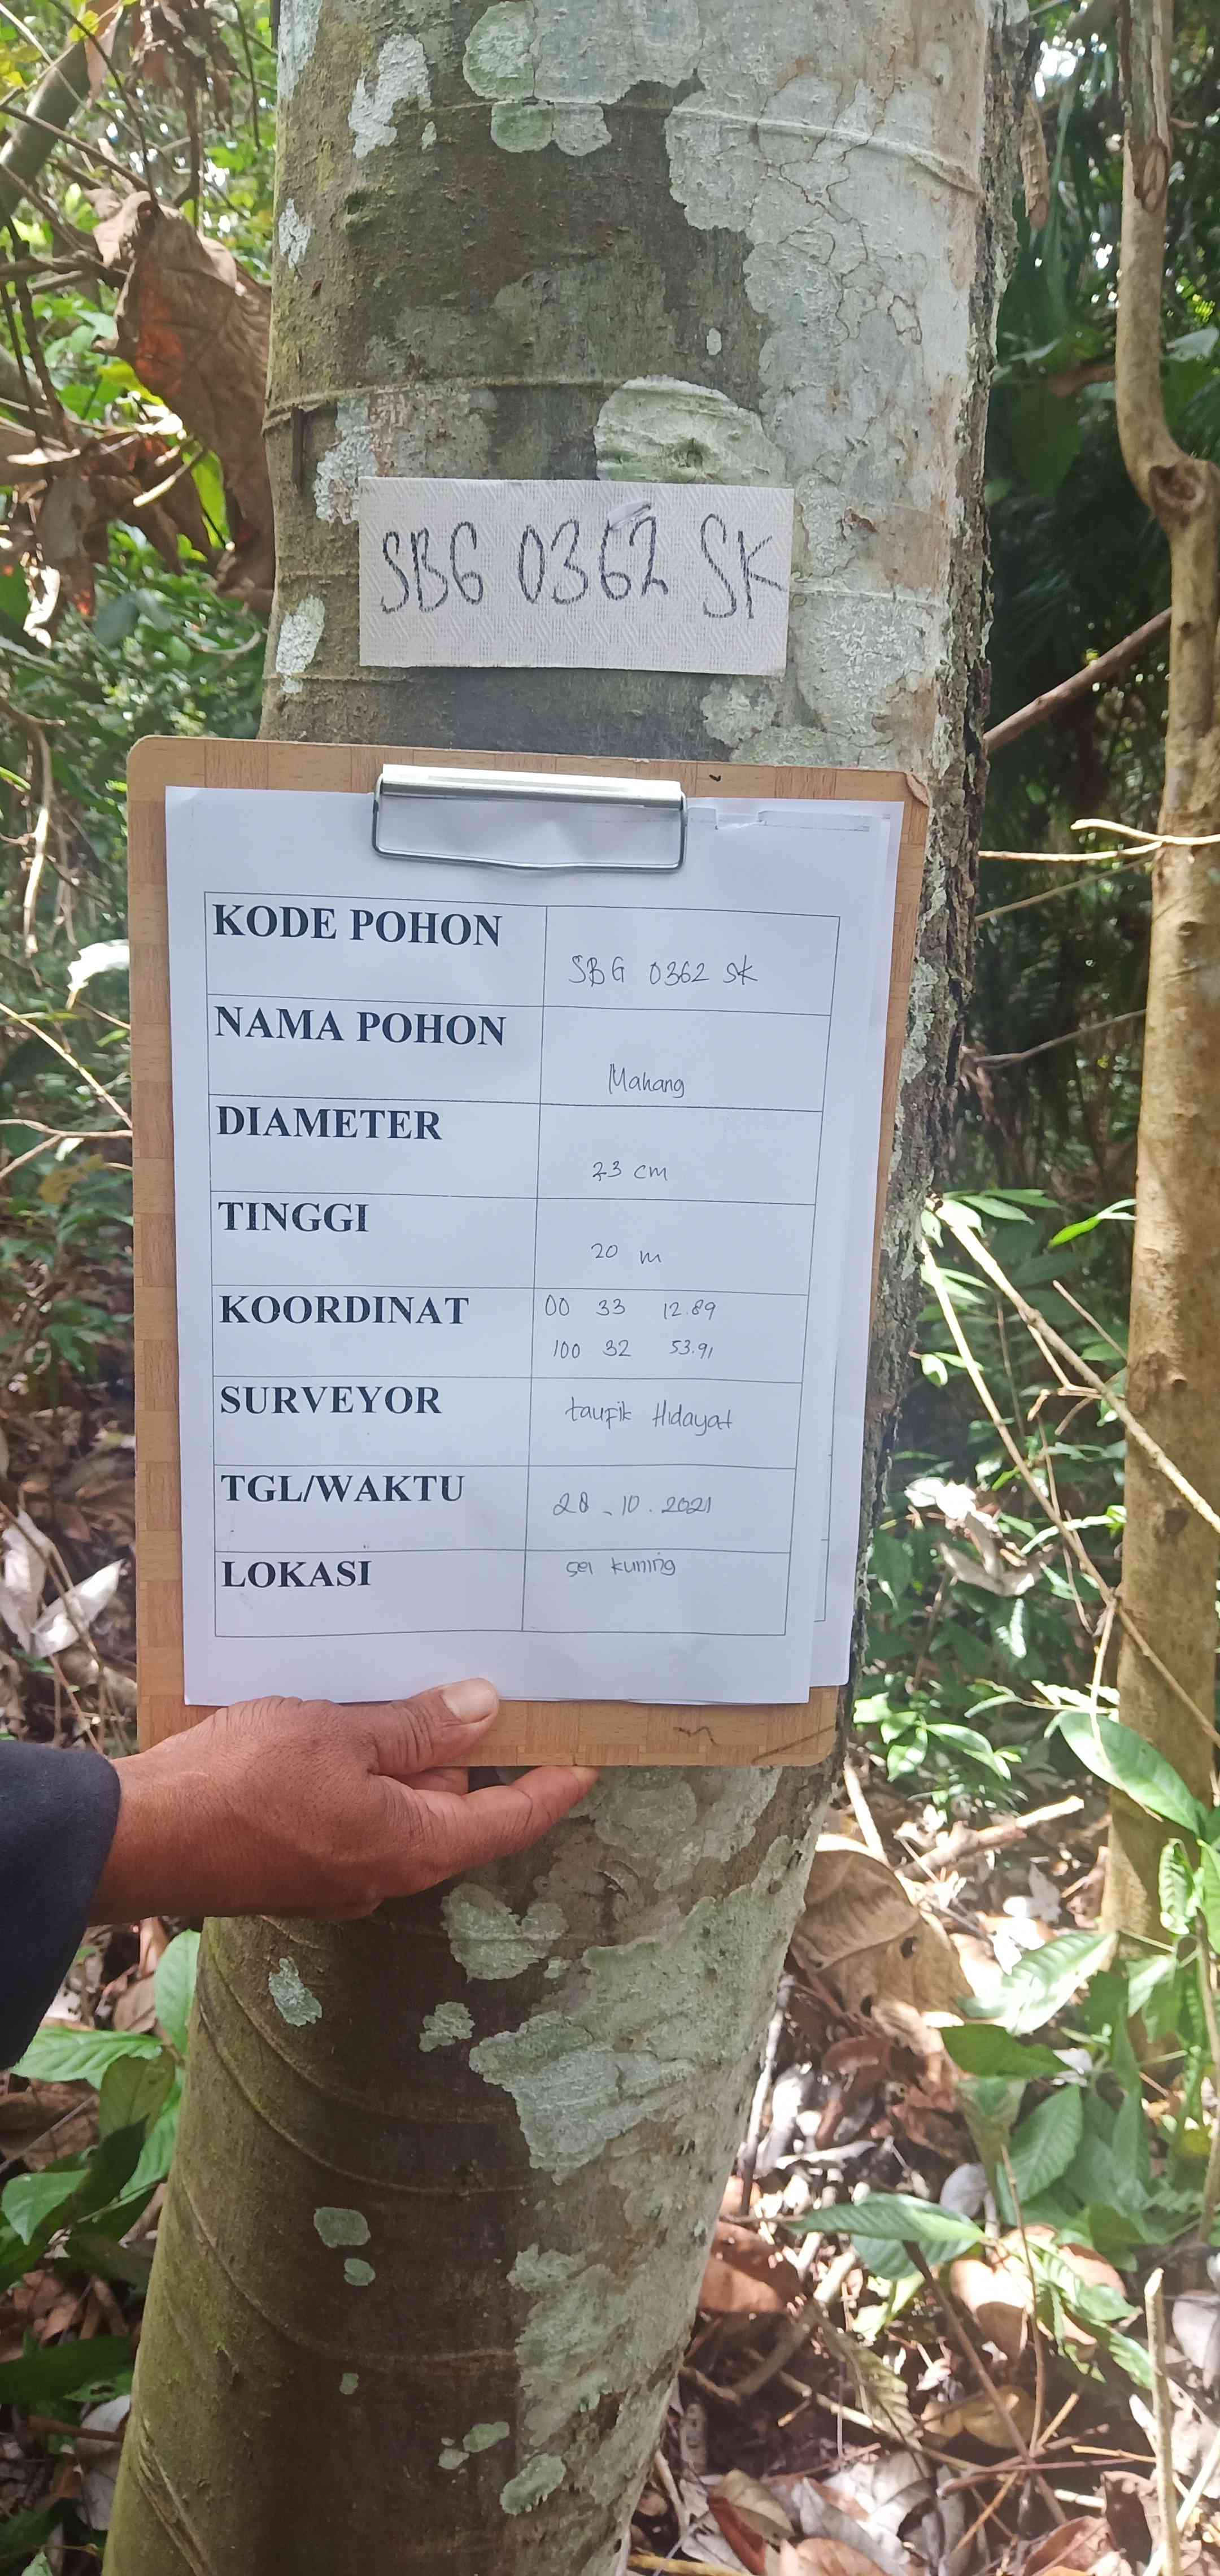 SBG 0362 SK
KODE POHON
SBG 0362 SK
NAMA POHON
Mahang
DIAMETER
23 cm
TINGGI
20 m
KOORDINAT
00 33 12.89
100 32 53.91
SURVEYOR
taufik Hidayat
TGL/WAKTU
28 - 10 . 2021
LOKASI
sei kuning